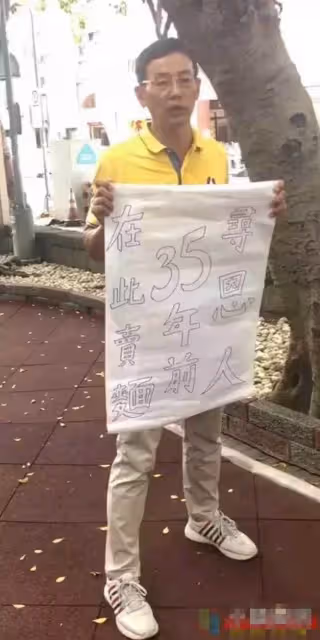 尋恩人
35年前
在此賣麵